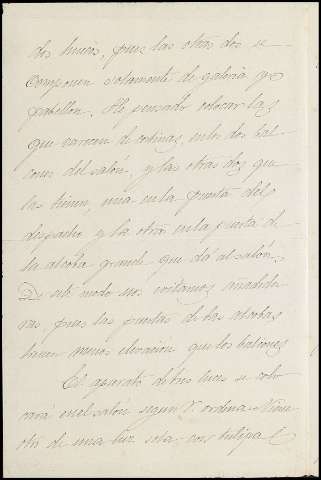 dos huecos, pues las otras dos se
componen solamente de galería y
pabellon. He pensado colocar las
que carecen de cortinas, en los dos bal-
cones del salón, y las otras dos que
las tienen, una en la puerta del
despacho y la otra en la puerta de
la alcoba grande que dá al salón.
De este modo nos evitamos añadidu-
ras, pues las puertas de las alcobas
tienen menos elevación que los balcones.
El aparato de tres luces se colo-
cará en el salón segun V. ordena. Viene
otro de una luz sola, con tulipa